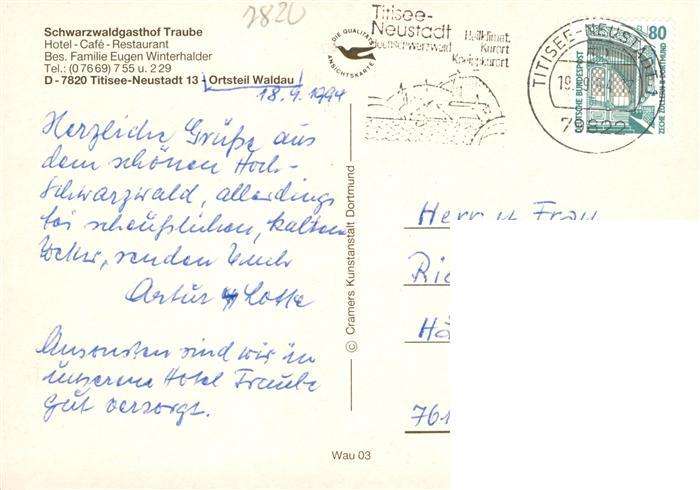 7820
Schwarzwaldgasthof Traube
Hotel - Café - Restaurant
Bes. Familie Eugen Winterhalder
Tel.: (0 76 69) 7 55 u. 2 29
D - 7820 Titisee-Neustadt 13 - Ortsteil Waldau
18.9.1994
Herzliche Grüße aus
dem schönen Hoch-
schwarzwald, allerdings
bei scheußlichem, kalten
Wetter, senden Euch
Artur & Lotte
Ansonsten sind wir in
unserem Hotel Traube
gut versorgt.
DIE QUALITÄTS
ANSICHTSKARTE
© Cramers Kunstanstalt Dortmund
Wau 03
Titisee-
Neustadt
Heilklimat.
Kurort
Kneippkurort
TITISEE-NEUSTADT 1
19.
79822
80
DEUTSCHE BUNDESPOST
ZECHE ZOLLERN II DORTMUND
Herr u Frau
Rie
Hä
761